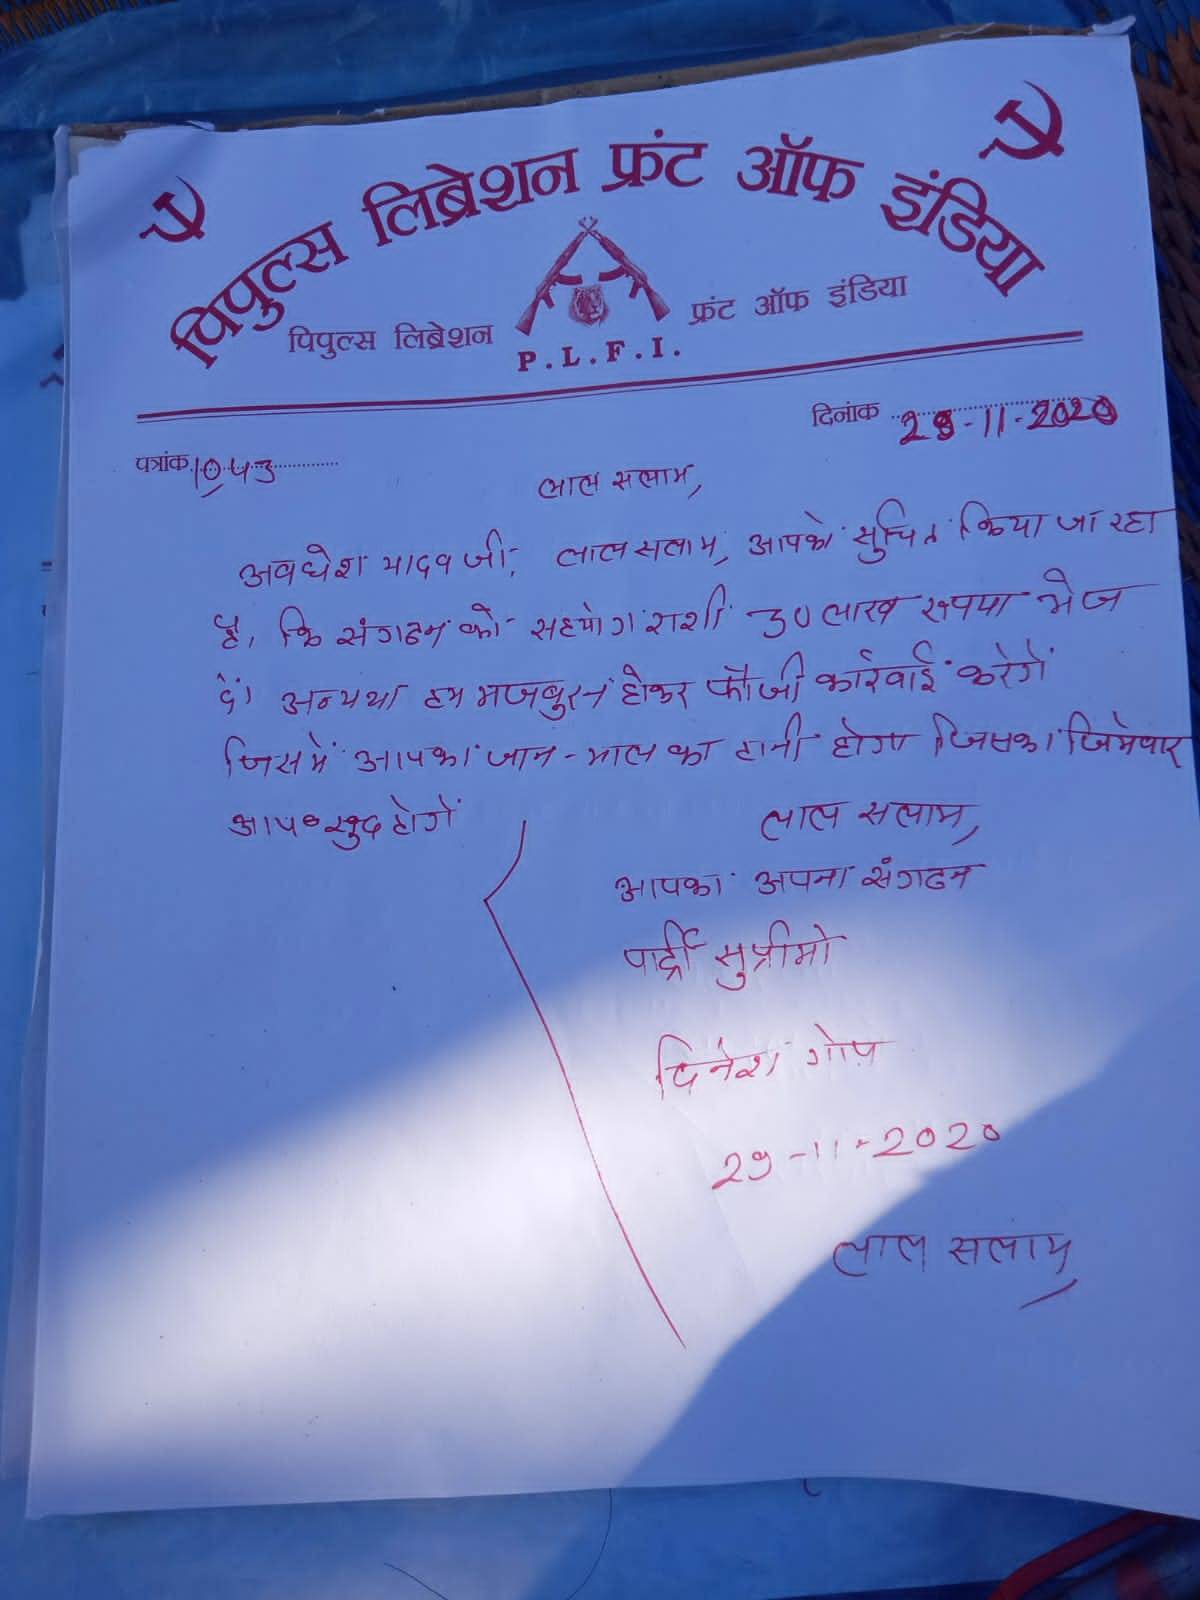 पिपुल्स लिब्रेशन फ्रंट ऑफ इंडिया
पिपुल्स लिब्रेशन फ्रंट ऑफ इंडिया
P.L.F.I.
दिनांक 29-11-2020
पत्रांक 1043
लाल सलाम,
अवधेश यादव जी, लाल सलाम, आपको सुचित किया जा रहा
है, कि संगठन को सहयोग राशी 30 लाख रूपया भेज
दें। अन्यथा हम मजबुरन होकर फौजी कार्रवाई करेगें
जिसमें आपका जान-माल का हानी होगा जिसका जिमेवार
आप खुद होगें
लाल सलाम,
आपका अपना संगठन
पार्टी सुप्रीमो
दिनेश गोप
29-11-2020
लाल सलाम,